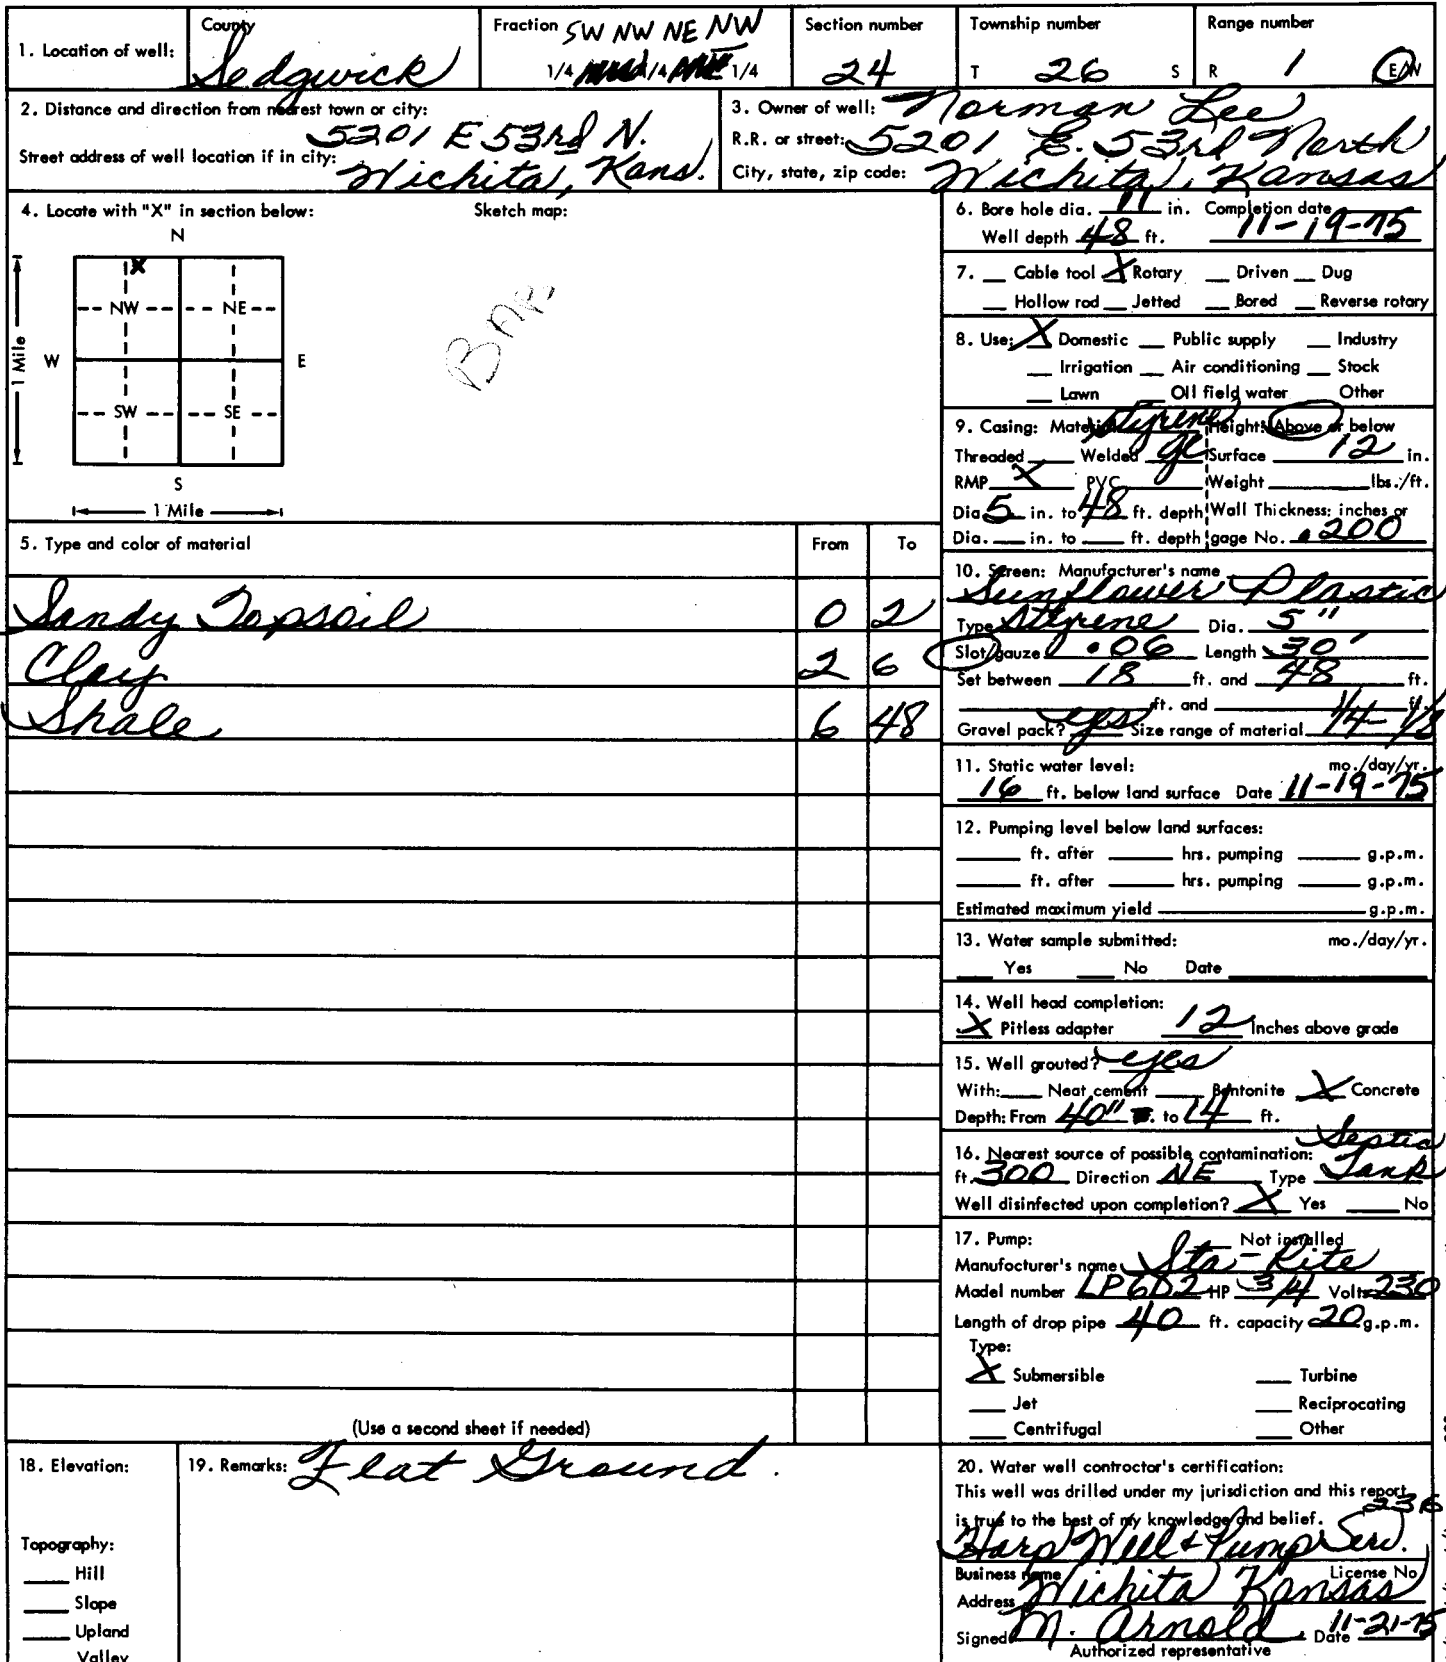 1. Location of well: County Sedgwick Fraction SW NW NE NW 1/4 1/4 1/4 Section number 24 Township number T 26 S Range number R 1 E/W
2. Distance and direction from nearest town or city: 5201 E 53rd N.
Street address of well location if in city: Wichita, Kans.
3. Owner of well: Norman Lee
R.R. or street: 5201 E. 53rd North
City, state, zip code: Wichita, Kansas
4. Locate with "X" in section below: Sketch map:
N
X
NW NE
W E
1 Mile
SW SE
S
1 Mile
6. Bore hole dia. 11 in. Completion date
Well depth 48 ft. 11-19-75
7. Cable tool X Rotary Driven Dug
Hollow rod Jetted Bored Reverse rotary
8. Use: X Domestic Public supply Industry
Irrigation Air conditioning Stock
Lawn Oil field water Other
9. Casing: Material Styrene Height: Above or below
Threaded Welded Surface 12 in.
RMP X PVC Weight lbs./ft.
Dia 5 in. to 48 ft. depth Wall Thickness: inches or
Dia. in. to ft. depth gage No. .200
5. Type and color of material From To
Sandy Topsoil 0 2
Clay 2 6
Shale 6 48
10. Screen: Manufacturer's name
Sunflower Plastic
Type Styrene Dia. 5"
Slot/gauze .06 Length 30'
Set between 18 ft. and 48 ft.
ft. and ft.
Gravel pack? yes Size range of material 1/4-1/8
11. Static water level: mo./day/yr.
16 ft. below land surface Date 11-19-75
12. Pumping level below land surfaces:
ft. after hrs. pumping g.p.m.
ft. after hrs. pumping g.p.m.
Estimated maximum yield g.p.m.
13. Water sample submitted: mo./day/yr.
Yes No Date
14. Well head completion:
X Pitless adapter 12 Inches above grade
15. Well grouted? yes
With: Neat cement Bentonite X Concrete
Depth: From 40" to 14 ft.
16. Nearest source of possible contamination: Septic
ft. 300 Direction NE Type Tank
Well disinfected upon completion? X Yes No
17. Pump: Not installed
Manufacturer's name Sta-Rite
Model number LP6D2 HP 3/4 Volts 230
Length of drop pipe 40 ft. capacity 20 g.p.m.
Type:
X Submersible Turbine
Jet Reciprocating
Centrifugal Other
(Use a second sheet if needed)
18. Elevation:
Topography:
Hill
Slope
Upland
Valley
19. Remarks: Flat Ground.
20. Water well contractor's certification:
This well was drilled under my jurisdiction and this report
is true to the best of my knowledge and belief. 236
Harp Well & Pump Serv.
Business name License No
Address Wichita Kansas
Signed M. Arnold Date 11-21-75
Authorized representative